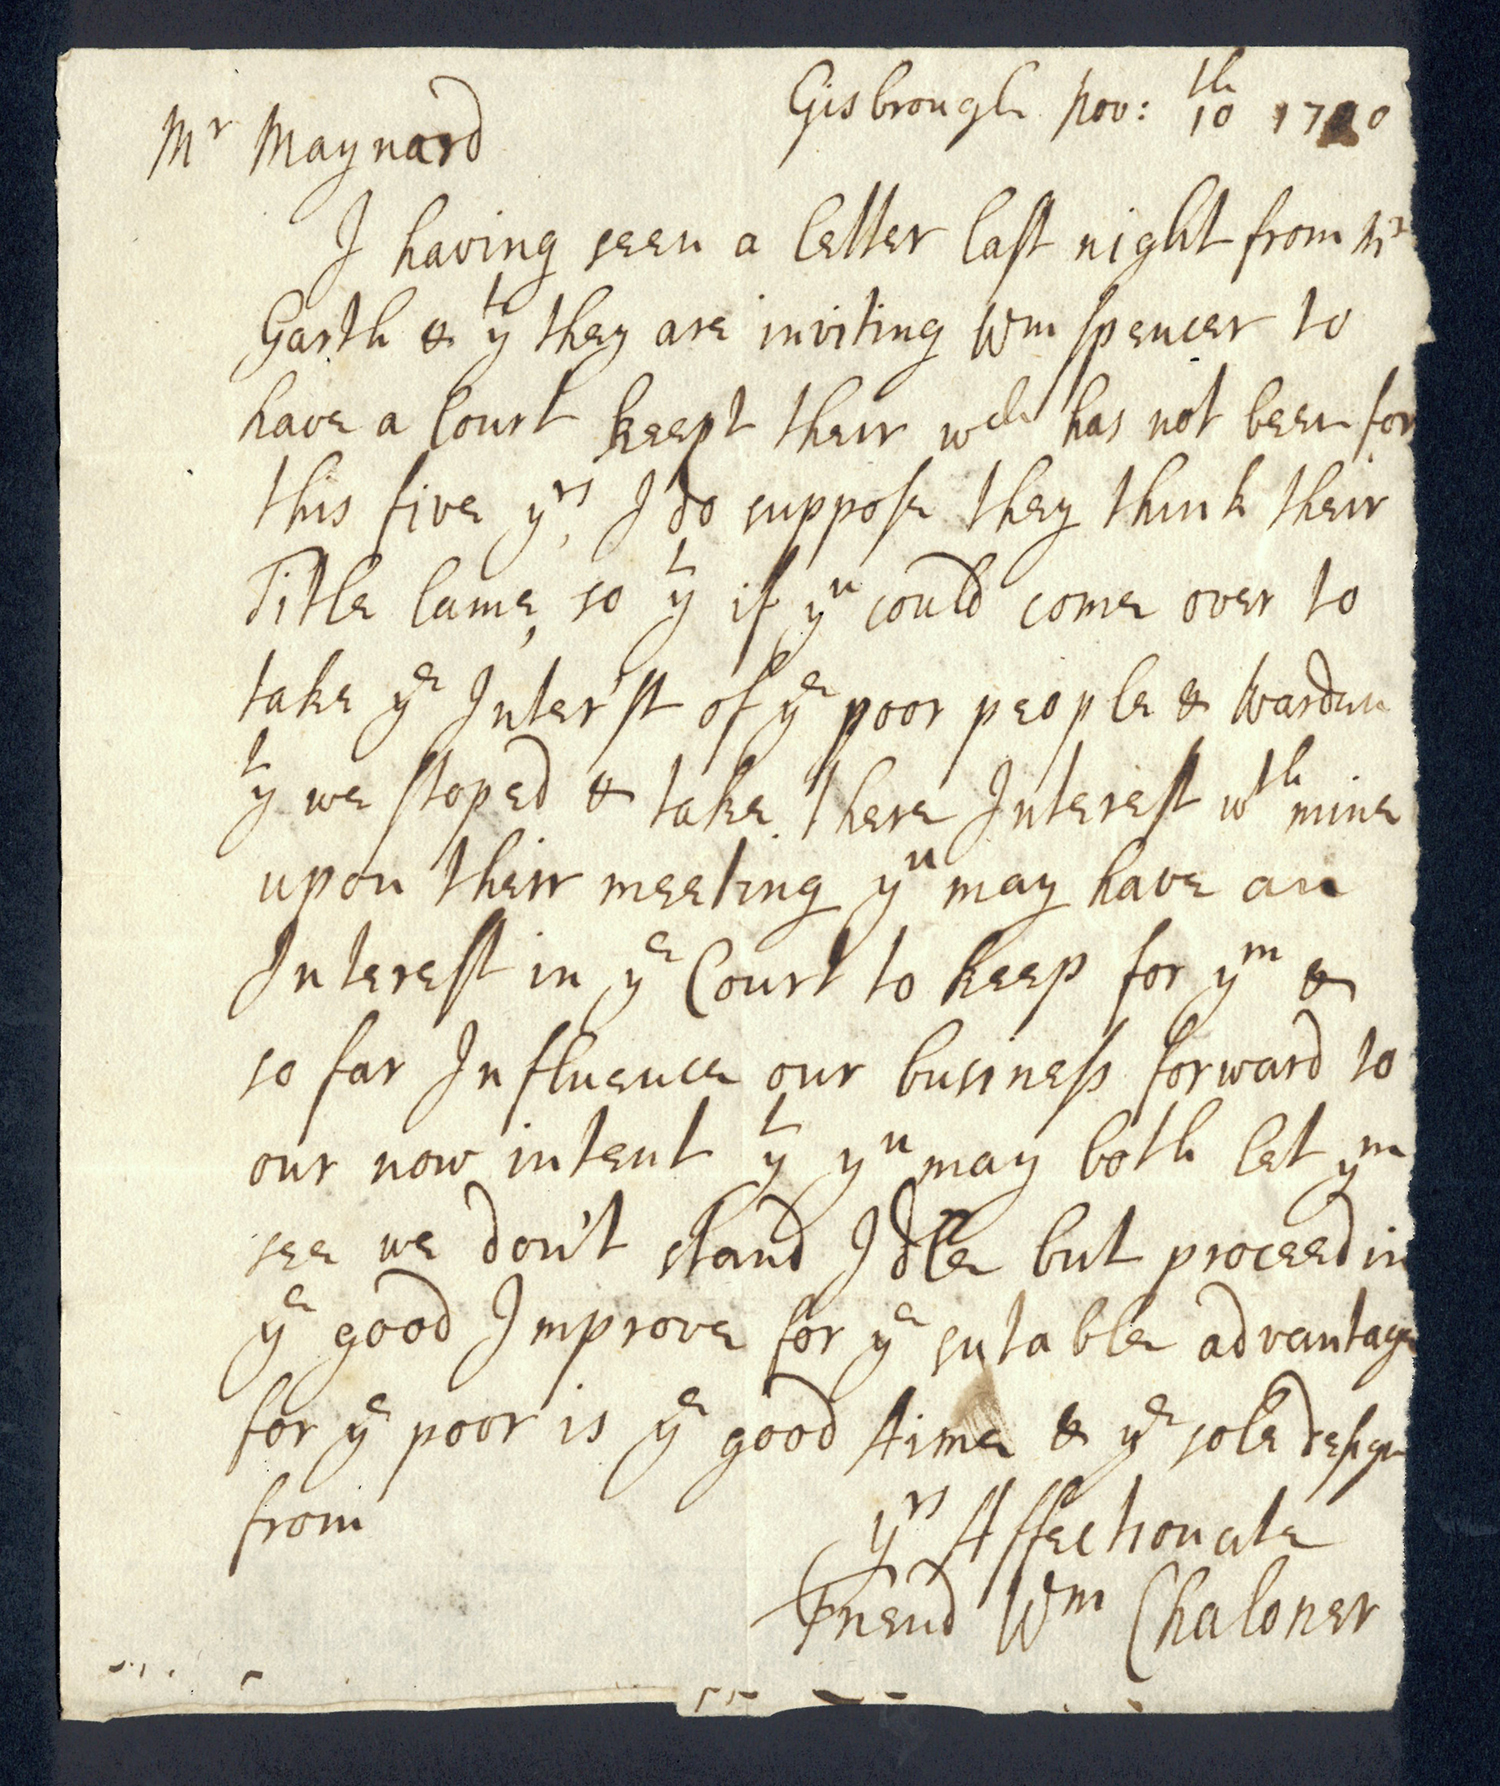 Gisbrough Nov: 10th 1720
Mr Maynard
I having seen a letter last night from Mr
Garth & yt they are inviting Wm Spencer to
have a Court keept their wch has not been for
this five yrs, I do suppose they think their
Title lame, so yt if yu could come over to
take ye Inter'st of ye poor people & Wardan
yt we stoped & take there Interest wth mine
upon their meeting yu may have an
Interest in ye Court to keep for ym &
so far Influence our business forward to
our now intent yt yu may both let ym
see we don't stand Idle but proceed in
ye good Improve for ye sutable advantage
for ye poor is ye good Aime & ye sole design
from
yrs Affectionate
Friend Wm Chaloner